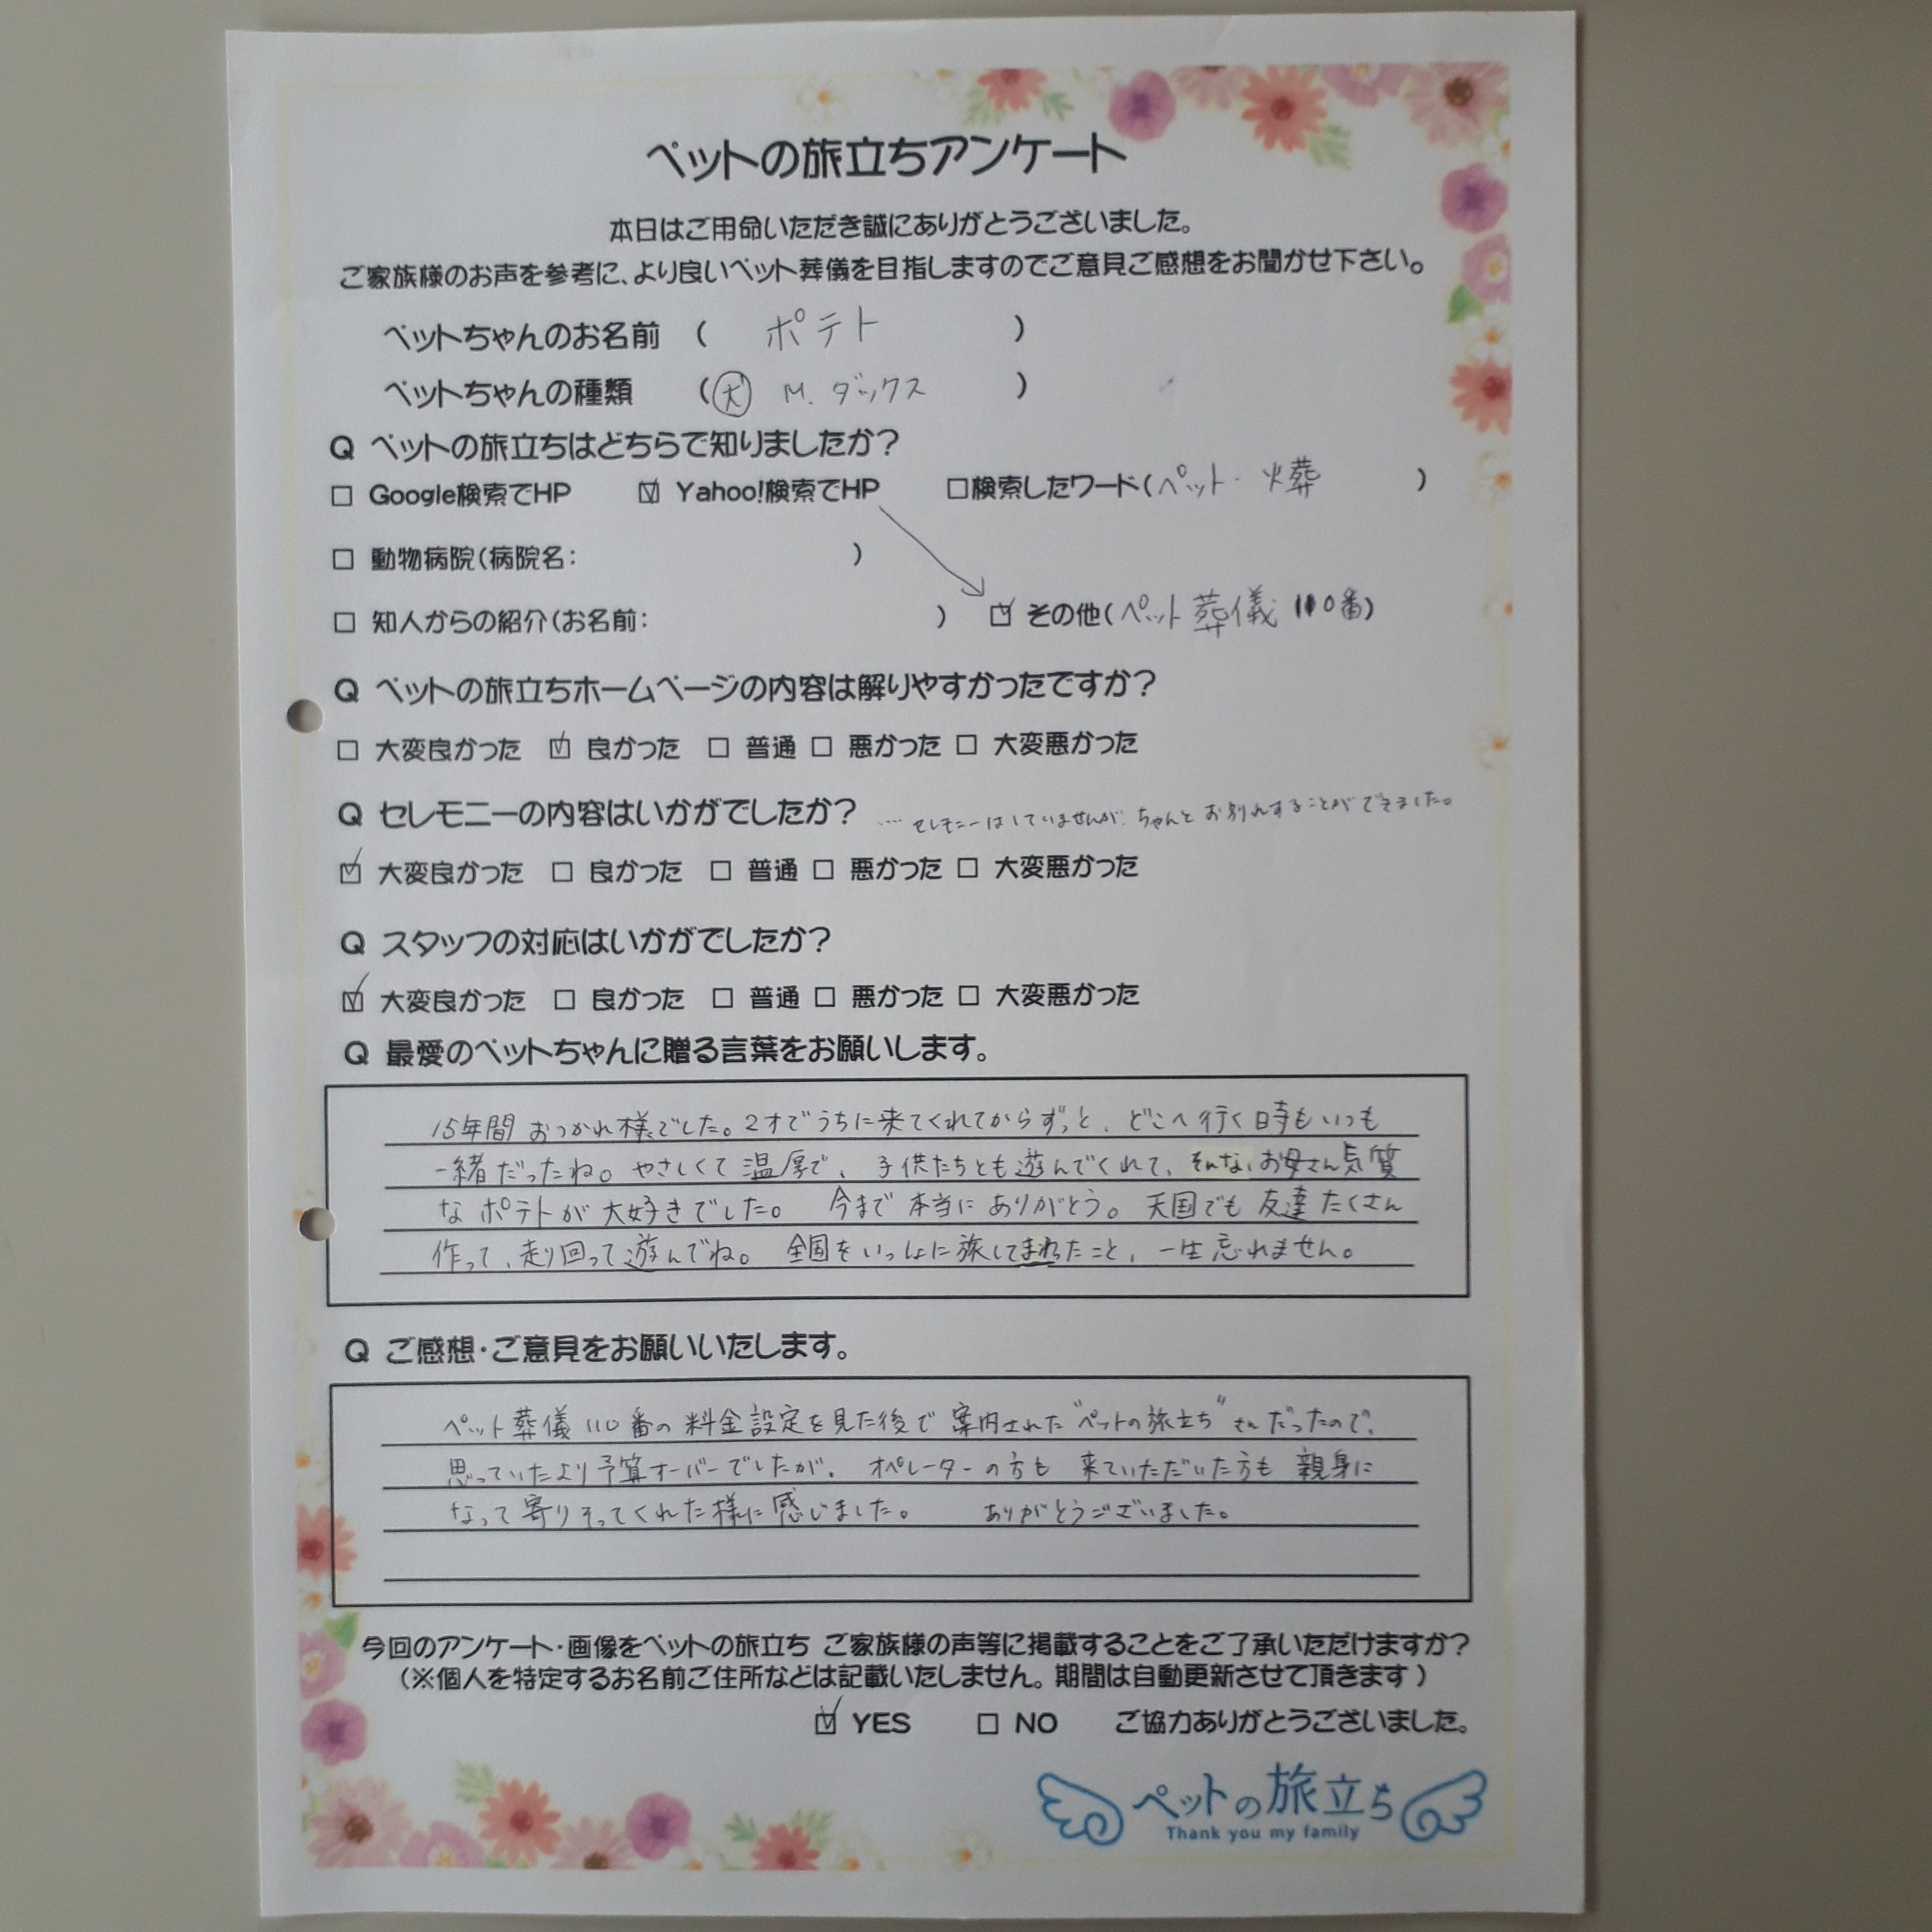 ペットの旅立ちアンケート
本日はご用命いただき誠にありがとうございました。
ご家族様のお声を参考に、より良いペット葬儀を目指しますのでご意見ご感想をお聞かせ下さい。
ペットちゃんのお名前 ( ポテト )
ペットちゃんの種類 (犬 M.ダックス )
Q ペットの旅立ちはどちらで知りましたか?
□ Google検索でHP ☑ Yahoo!検索でHP □検索したワード(ペット・火葬 )
□ 動物病院(病院名: )
□ 知人からの紹介(お名前: ) ☑ その他(ペット葬儀110番)
Q ペットの旅立ちホームページの内容は解りやすかったですか?
□ 大変良かった ☑ 良かった □ 普通 □ 悪かった □ 大変悪かった
Q セレモニーの内容はいかがでしたか? ‥‥セレモニーはしていませんが、ちゃんとお別れすることができました。
☑ 大変良かった □ 良かった □ 普通 □ 悪かった □ 大変悪かった
Q スタッフの対応はいかがでしたか?
☑ 大変良かった □ 良かった □ 普通 □ 悪かった □ 大変悪かった
Q 最愛のペットちゃんに贈る言葉をお願いします。
15年間おつかれ様でした。2才でうちに来てくれてからずっと、どこへ行く時もいつも
一緒だったね。やさしくて温厚で、子供たちとも遊んでくれて、そんなお母さん気質
なポテトが大好きでした。 今まで本当にありがとう。天国でも友達たくさん
作って、走り回って遊んでね。 全国をいっしょに旅してまわったこと、一生忘れません。
Q ご感想・ご意見をお願いいたします。
ペット葬儀110番の料金設定を見た後で案内された"ペットの旅立ち"さんだったので、
思っていたより予算オーバーでしたが、オペレーターの方も来ていただいた方も親身に
なって寄りそってくれた様に感じました。 ありがとうございました。
今回のアンケート・画像をペットの旅立ち ご家族様の声等に掲載することをご了承いただけますか?
(※個人を特定するお名前ご住所などは記載いたしません。期間は自動更新させて頂きます)
☑ YES □ NO ご協力ありがとうございました。
ペットの旅立ち
Thank you my family